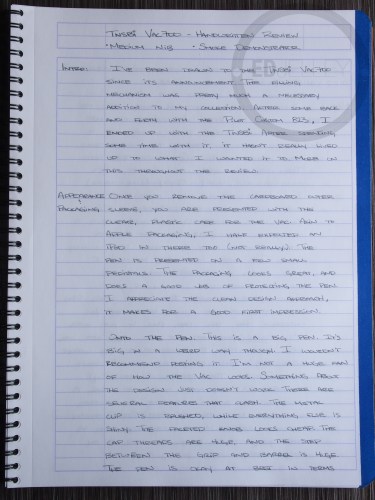 TWSBI VAC700 - HANDWRITTEN REVIEW
• MEDIUM NIB • SMOKE DEMONSTRATOR
INTRO: I'VE BEEN DRAWN TO THE TWSBI VAC700
SINCE ITS ANNOUNCEMENT. THE FILLING
MECHANISM WAS PRETTY MUCH A NECESSARY
ADDITION TO MY COLLECTION. AFTER SOME BACK
AND FORTH WITH THE PILOT CUSTOM 823, I
ENDED UP WITH THE TWSBI. AFTER SPENDING
SOME TIME WITH IT, IT HASN'T REALLY LIVED
UP TO WHAT I WANTED IT TO. MORE ON
THIS THROUGHOUT THE REVIEW.
APPEARANCE ONCE YOU REMOVE THE CARDBOARD OUTER
PACKAGING: SLEEVE, YOU ARE PRESENTED WITH THE
CLEAR, PLASTIC CASE FOR THE VAC. AKIN TO
APPLE PACKAGING, I HAVE EXPECTED AN
IPOD IN THERE TOO (NOT REALLY). THE
PEN IS PRESENTED ON A FEW SMALL
PEDESTALS. THE PACKAGING LOOKS GREAT, AND
DOES A GOOD JOB OF PROTECTING THE PEN.
I APPRECIATE THE CLEAN DESIGN APPROACH,
IT MAKES FOR A GOOD FIRST IMPRESSION.
ONTO THE PEN. THIS IS A BIG PEN. IT'S
BIG IN A WEIRD WAY THOUGH. I WOULDN'T
RECOMMEND POSTING IT. I'M NOT A HUGE FAN
OF HOW THE VAC LOOKS. SOMETHING ABOUT
THE DESIGN JUST DOESN'T WORK. THERE ARE
SEVERAL FEATURES THAT CLASH. THE METAL
CLIP IS BRUSHED, WHILE EVERYTHING ELSE IS
SHINY. THE FACETED BARREL LOOKS CHEAP. THE
CAP THREADS ARE HUGE, AND THE STEP
BETWEEN THE GRIP AND BARREL IS HUGE.
THE PEN IS OKAY AT BEST IN TERMS